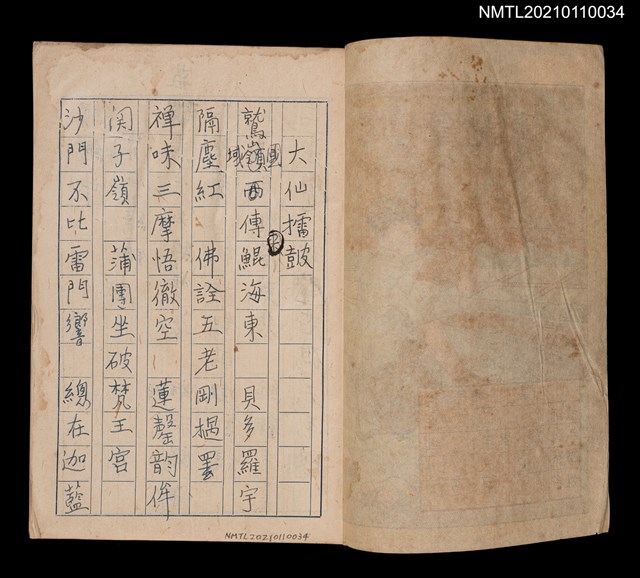 NMTL20210110034
大仙擂鼓
鷲嶺西傳鯤海東 貝多羅宇
隔塵紅 佛詮五老剛撾罢
禅味三摩悟徹空 蓮罄韵侔
関子嶺 蒲團坐破梵王宮
沙門不比雷門響 總在迦藍
NMTL20210110034